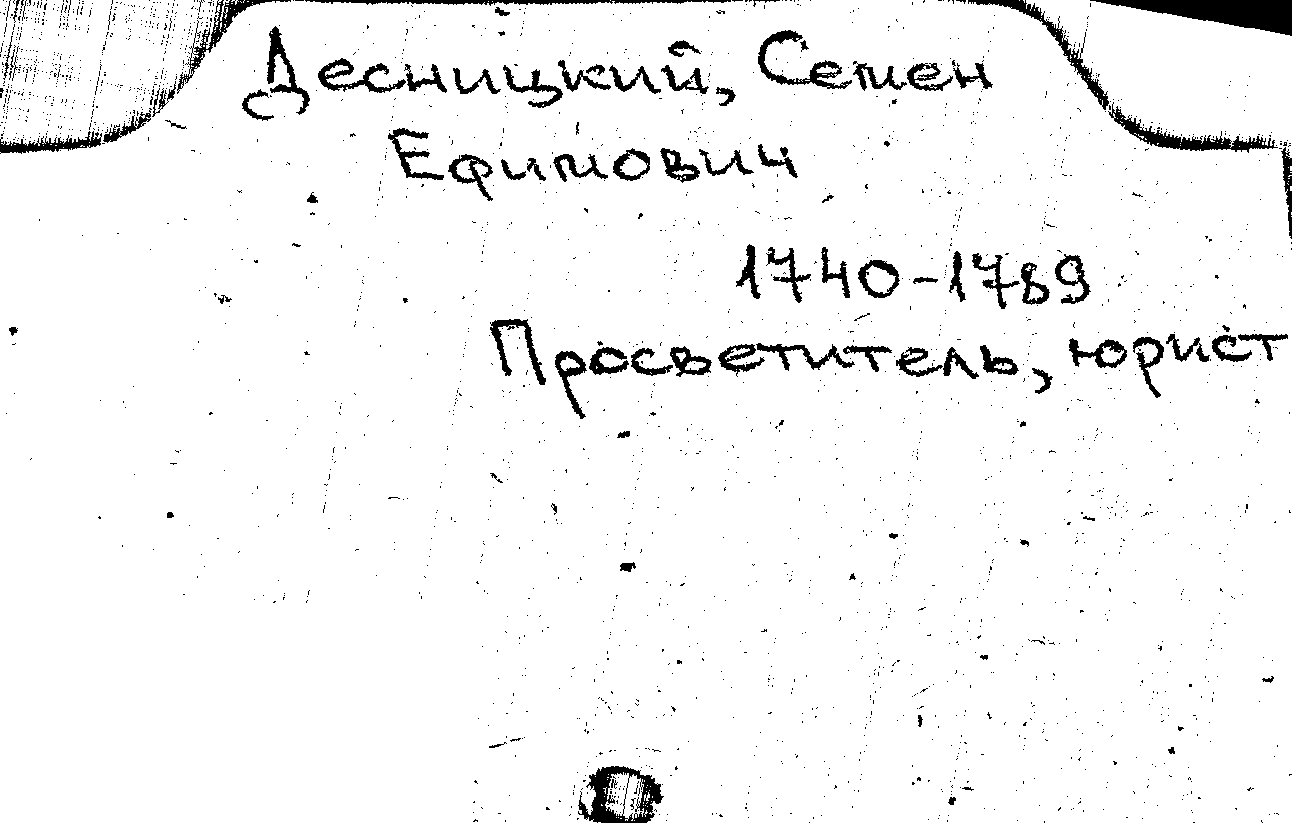 Десницкий, Семен
Ефимович
1740-1789
Просветитель, юрист